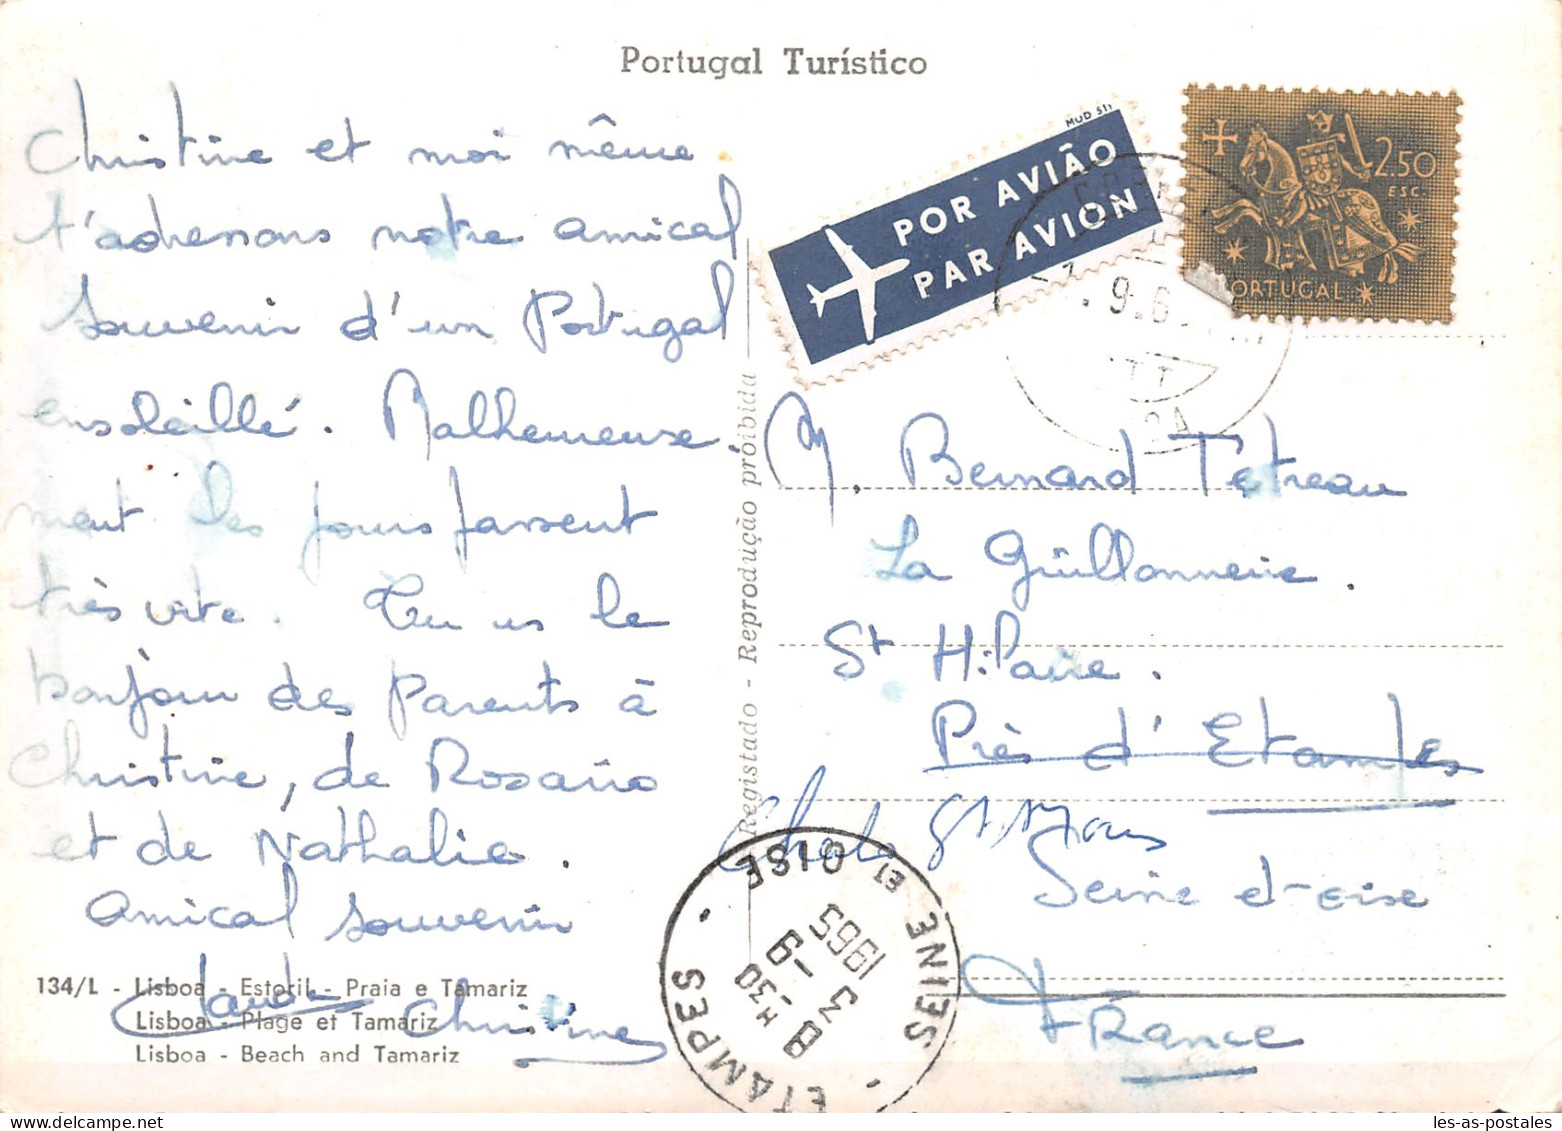 Portugal Turístico
Christine et moi même
t'adressons notre amical
souvenir d'un Portugal
ensoleillé. Malheureuse
ment les jours passent
très vite. Tu as le
bonjour des parents à
Christine, de Rosario
et de Nathalie.
Amical souvenir
Claude Christine
134/L - Lisboa - Estoril - Praia e Tamariz
Lisboa - Plage et Tamariz
Lisboa - Beach and Tamariz
Registado - Reprodução proibida
MOD 511
POR AVIÃO
PAR AVION
2.50
ESC.
PORTUGAL
9.6
TT
M. Bernard Tetreau
La Guillonnerie.
St Hilaire.
Près d'Etampes
St Mars
Seine et-oise
France
ETAMPES
SEINE ET OISE
8 H 30
3 - 9
1965
les-as-postales